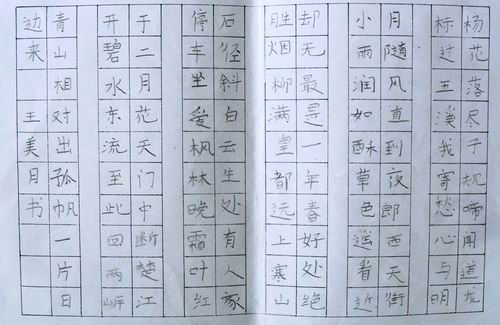 杨花落尽子规啼闻道龙
标过五溪我寄愁心与明
月随风直到夜郎西天街
小雨润如酥草色遥看近
却无最是一年春好处绝
胜烟柳满皇都远上寒山
石径斜白云生处有人家
停车坐爱枫林晚霜叶红
于二月花天门中断楚江
开碧水东流至此回两岸
青山相对出孤帆一片日
边来 王美月书